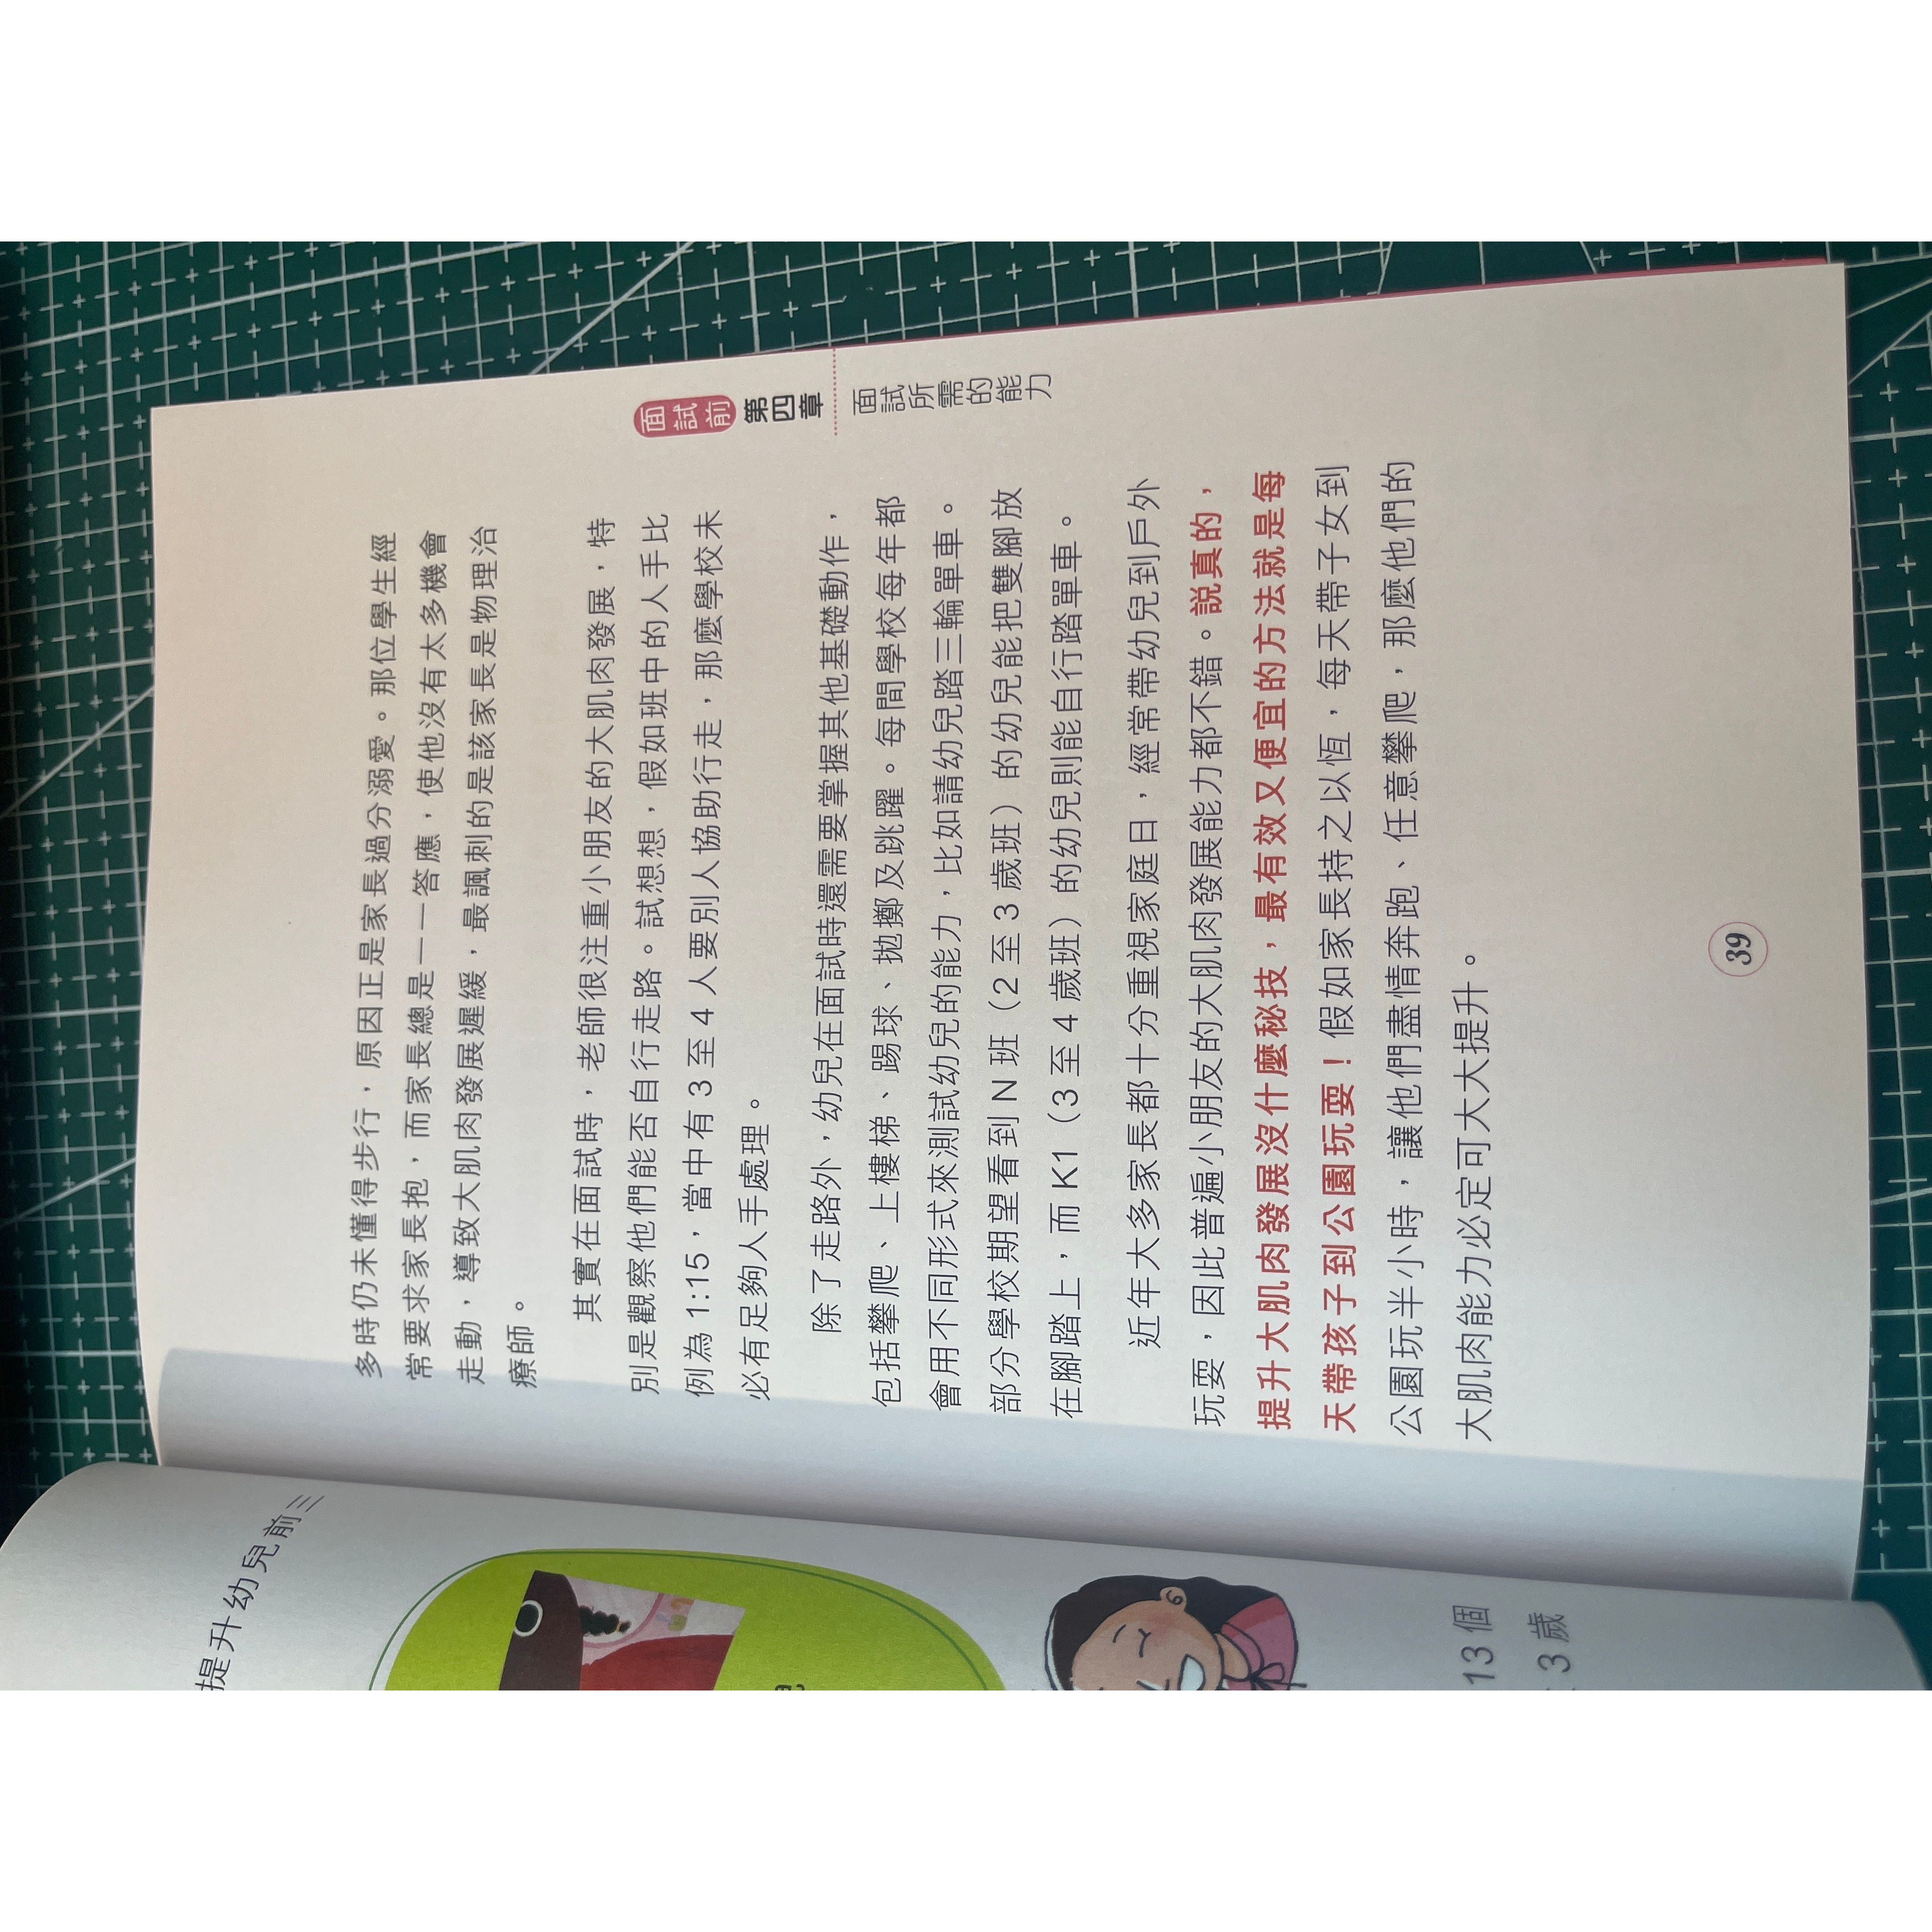 提升幼兒前三
13 個
3 歲
面試前
第四章
面試所需的能力
多時仍未懂得步行，原因正是家長過分溺愛。那位學生經
常要求家長抱，而家長總是一一答應，使他沒有太多機會
走動，導致大肌肉發展遲緩，最諷刺的是該家長是物理治
療師。
其實在面試時，老師很注重小朋友的大肌肉發展，特
別是觀察他們能否自行走路。試想想，假如班中的人手比
例為 1:15，當中有 3 至 4 人要別人協助行走，那麼學校未
必有足夠人手處理。
除了走路外，幼兒在面試時還需要掌握其他基礎動作，
包括攀爬、上樓梯、踢球、拋擲及跳躍。每間學校每年都
會用不同形式來測試幼兒的能力，比如請幼兒踏三輪單車。
部分學校期望看到 N 班（2 至 3 歲班）的幼兒能把雙腳放
在腳踏上，而 K1（3 至 4 歲班）的幼兒則能自行踏單車。
近年大多家長都十分重視家庭日，經常帶幼兒到戶外
玩耍，因此普遍小朋友的大肌肉發展能力都不錯。説真的，
提升大肌肉發展沒什麼秘技，最有效又便宜的方法就是每
天帶孩子到公園玩耍！假如家長持之以恆，每天帶子女到
公園玩半小時，讓他們盡情奔跑、任意攀爬，那麼他們的
大肌肉能力必定可大大提升。
39